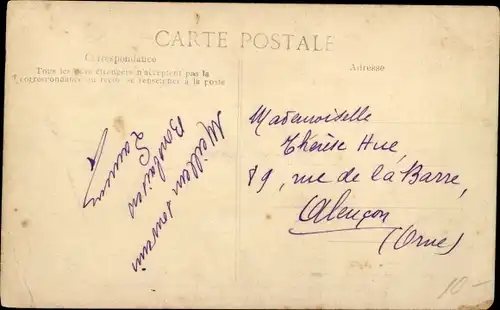 CARTE POSTALE
Correspondance
Tous les pays étrangers n'acceptent pas la
correspondance au recto se renseigner à la poste
Adresse
Meilleur souvenir
Mademoiselle
Thérèse Hue,
89, rue de la Barre,
Alençon
(Orne)
10-